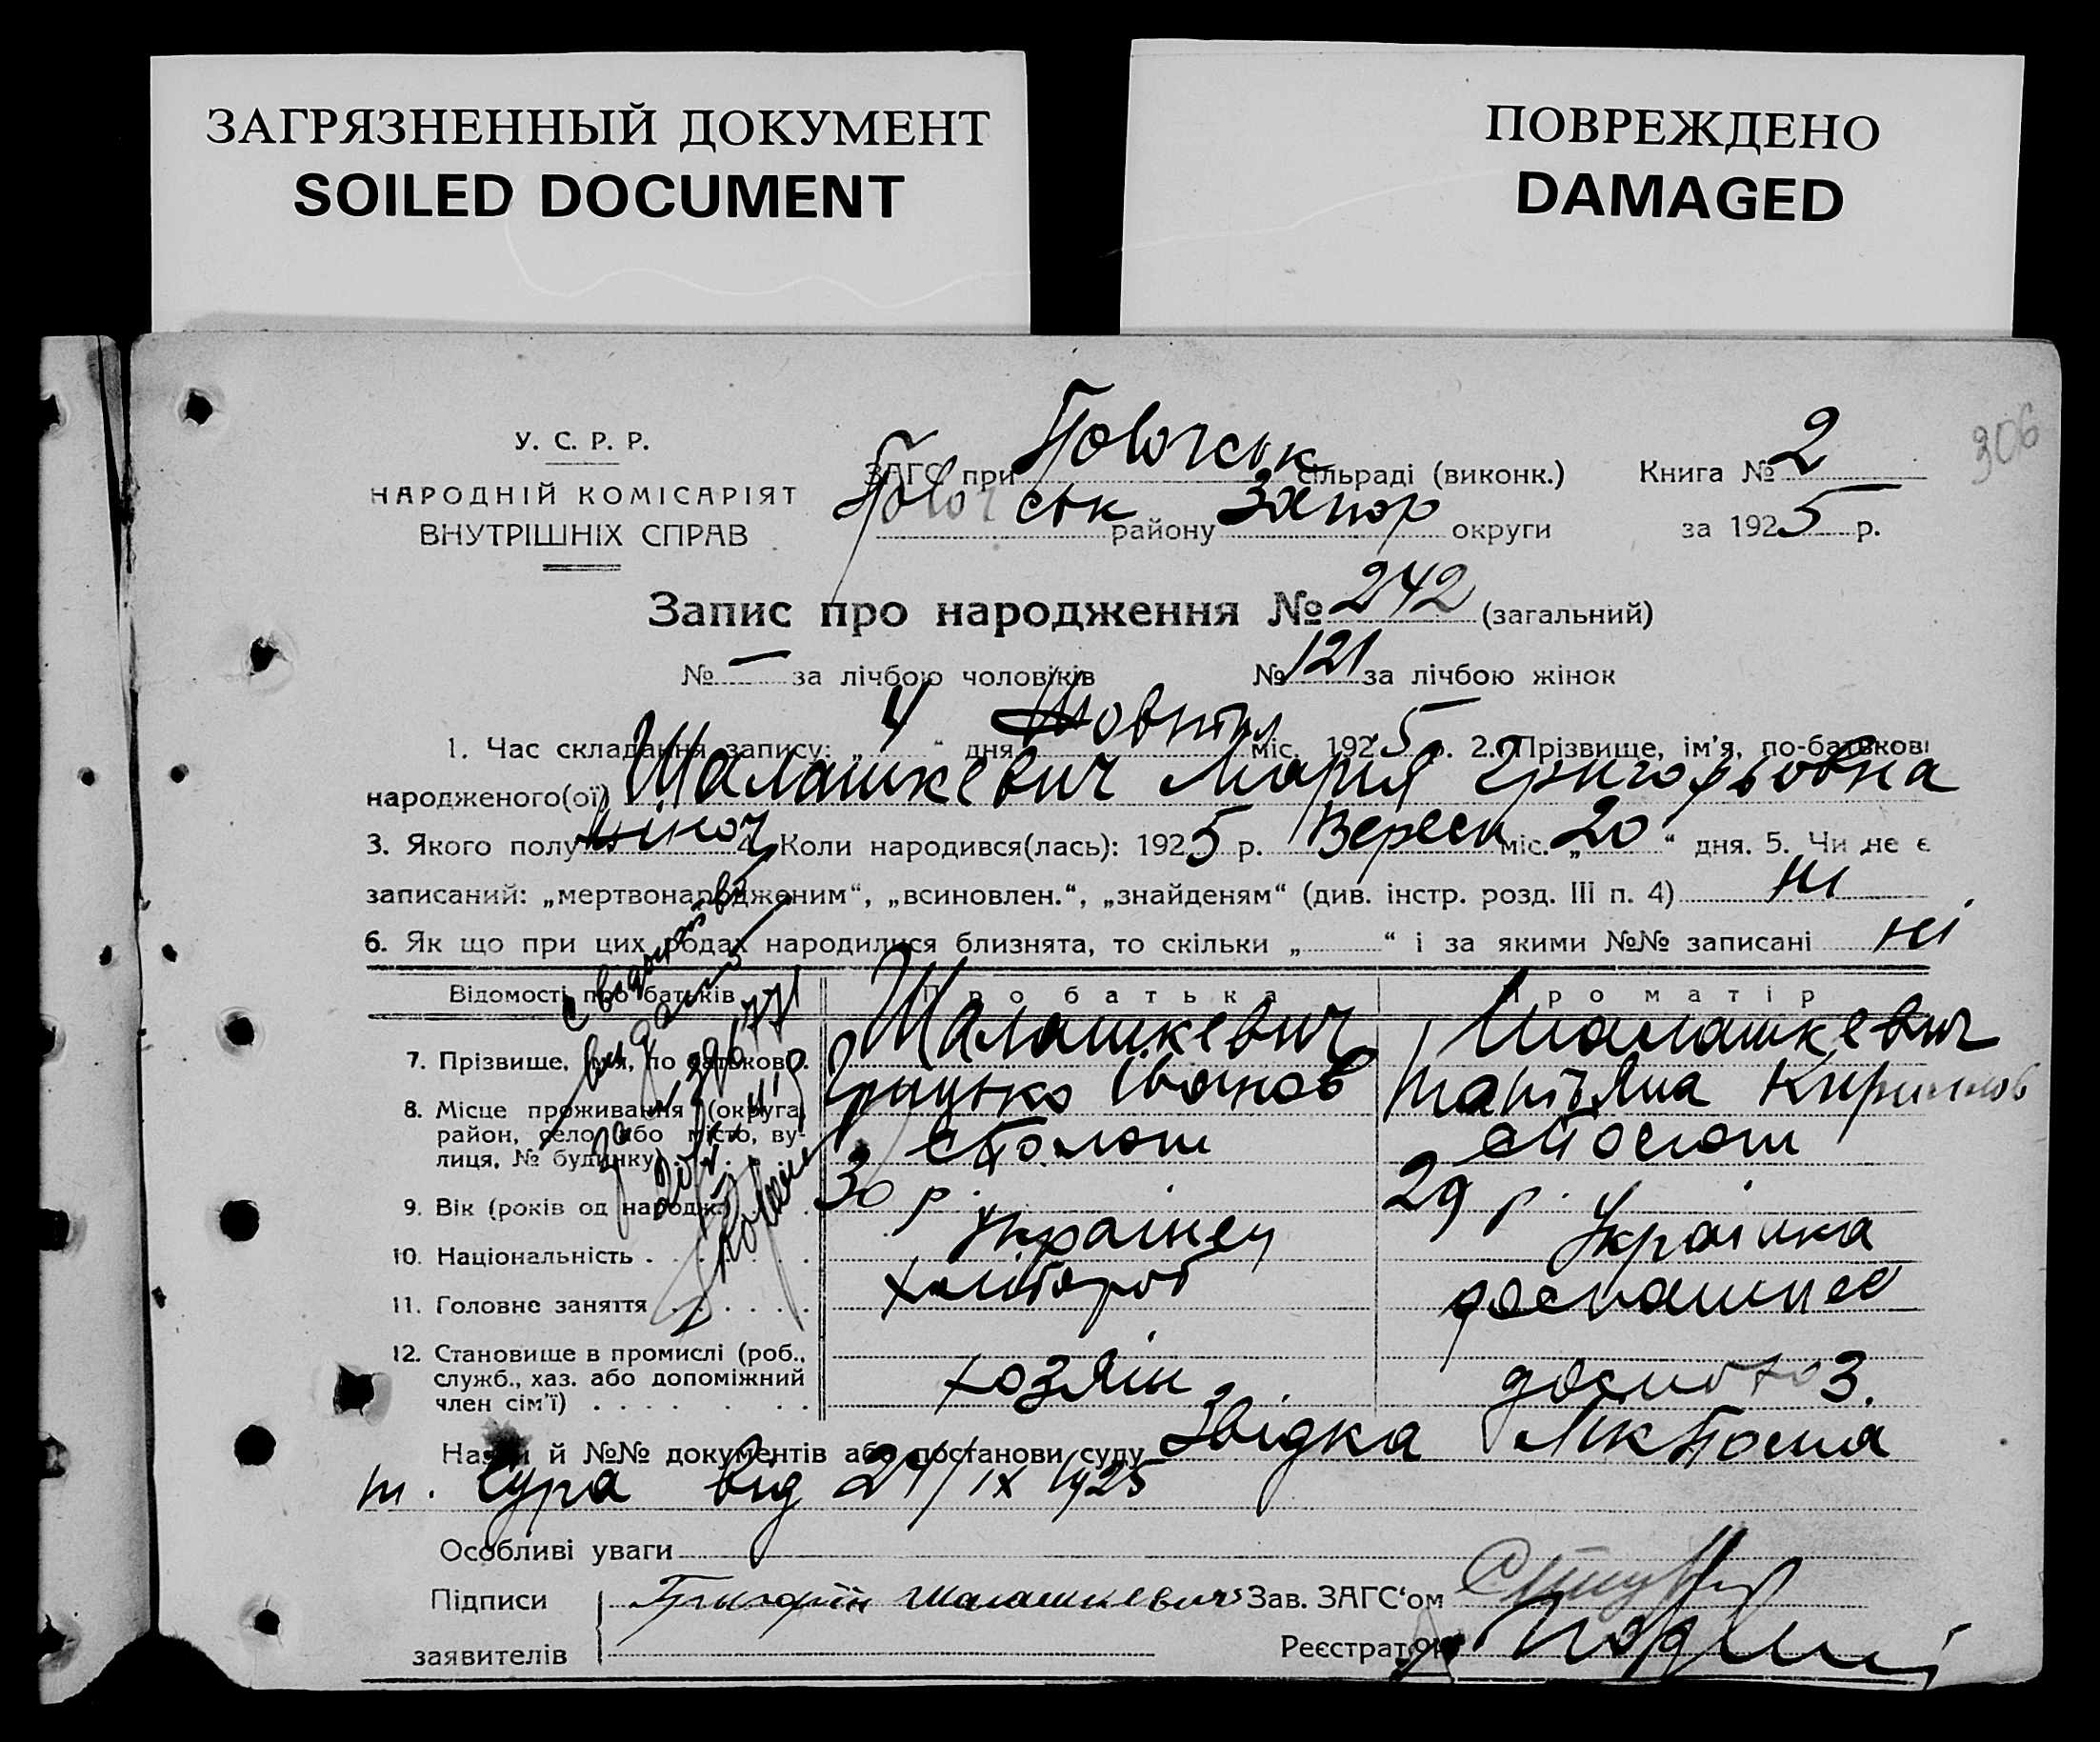 ЗАГРЯЗНЕННЫЙ ДОКУМЕНТ
SOILED DOCUMENT
ПОВРЕЖДЕНО
DAMAGED
306
У. С. Р. Р.
НАРОДНІЙ КОМІСАРІЯТ
ВНУТРІШНІХ СПРАВ
ЗАГС при сільраді (виконк.) Книга № 2
району Запор округи за 1925 р.
Запис про народження № 242 (загальний)
№ — за лічбою чоловіків № 121 за лічбою жінок
1. Час складання запису: „ 4 “ дня Жовтня міс. 1925 р. 2. Прізвище, ім’я, по-батькові
народженого(ої) Шалашкевич Мария Григорьовна
3. Якого полу жіноч 4. Коли народився(лась): 1925 р. Вересн міс. „ 20 “ дня. 5. Чи не є
записаний: „мертвонародженим“, „всиновлен.“, „знайденям“ (див. інстр. розд. III п. 4) ні
6. Як що при цих родах народилися близнята, то скільки „ “ і за якими №№ записані ні
Відомості про батьків Про батька Про матір
7. Прізвище, ім’я, по батькові. Шалашкевич Шалашкевич
Грицько Іванов Татьяна Кирилов
8. Місце проживання (округа,
район, село або місто, ву-
лиця, № будинку)
9. Вік (років од народж.) 30 р. 29 р.
10. Національність . українец Українка
11. Головне заняття хлібороб домашнее
12. Становище в промислі (роб.,
служб., хаз. або допоміжний
член сім’ї) хозяін
Назви й №№ документів або постанови суду Звідка
т. Чура від 24/IX 1925
Особливі уваги
Підписи Григорій Шалашкевич Зав. ЗАГС‘ом
заявителів Реєстратор